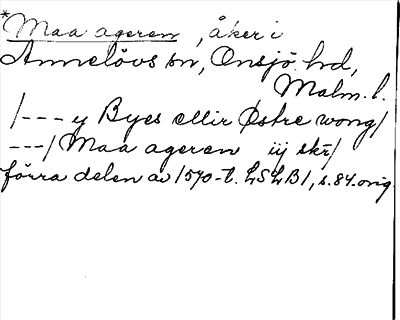 *Maa ageren, åker i
Annelövs sn, Onsjö hd,
Malm. l.
/--- y Byes ellir Østre wong/
---/ Maa ageren iij skr/
förra delen av 1570-t. LSLB1, s.84.orig.